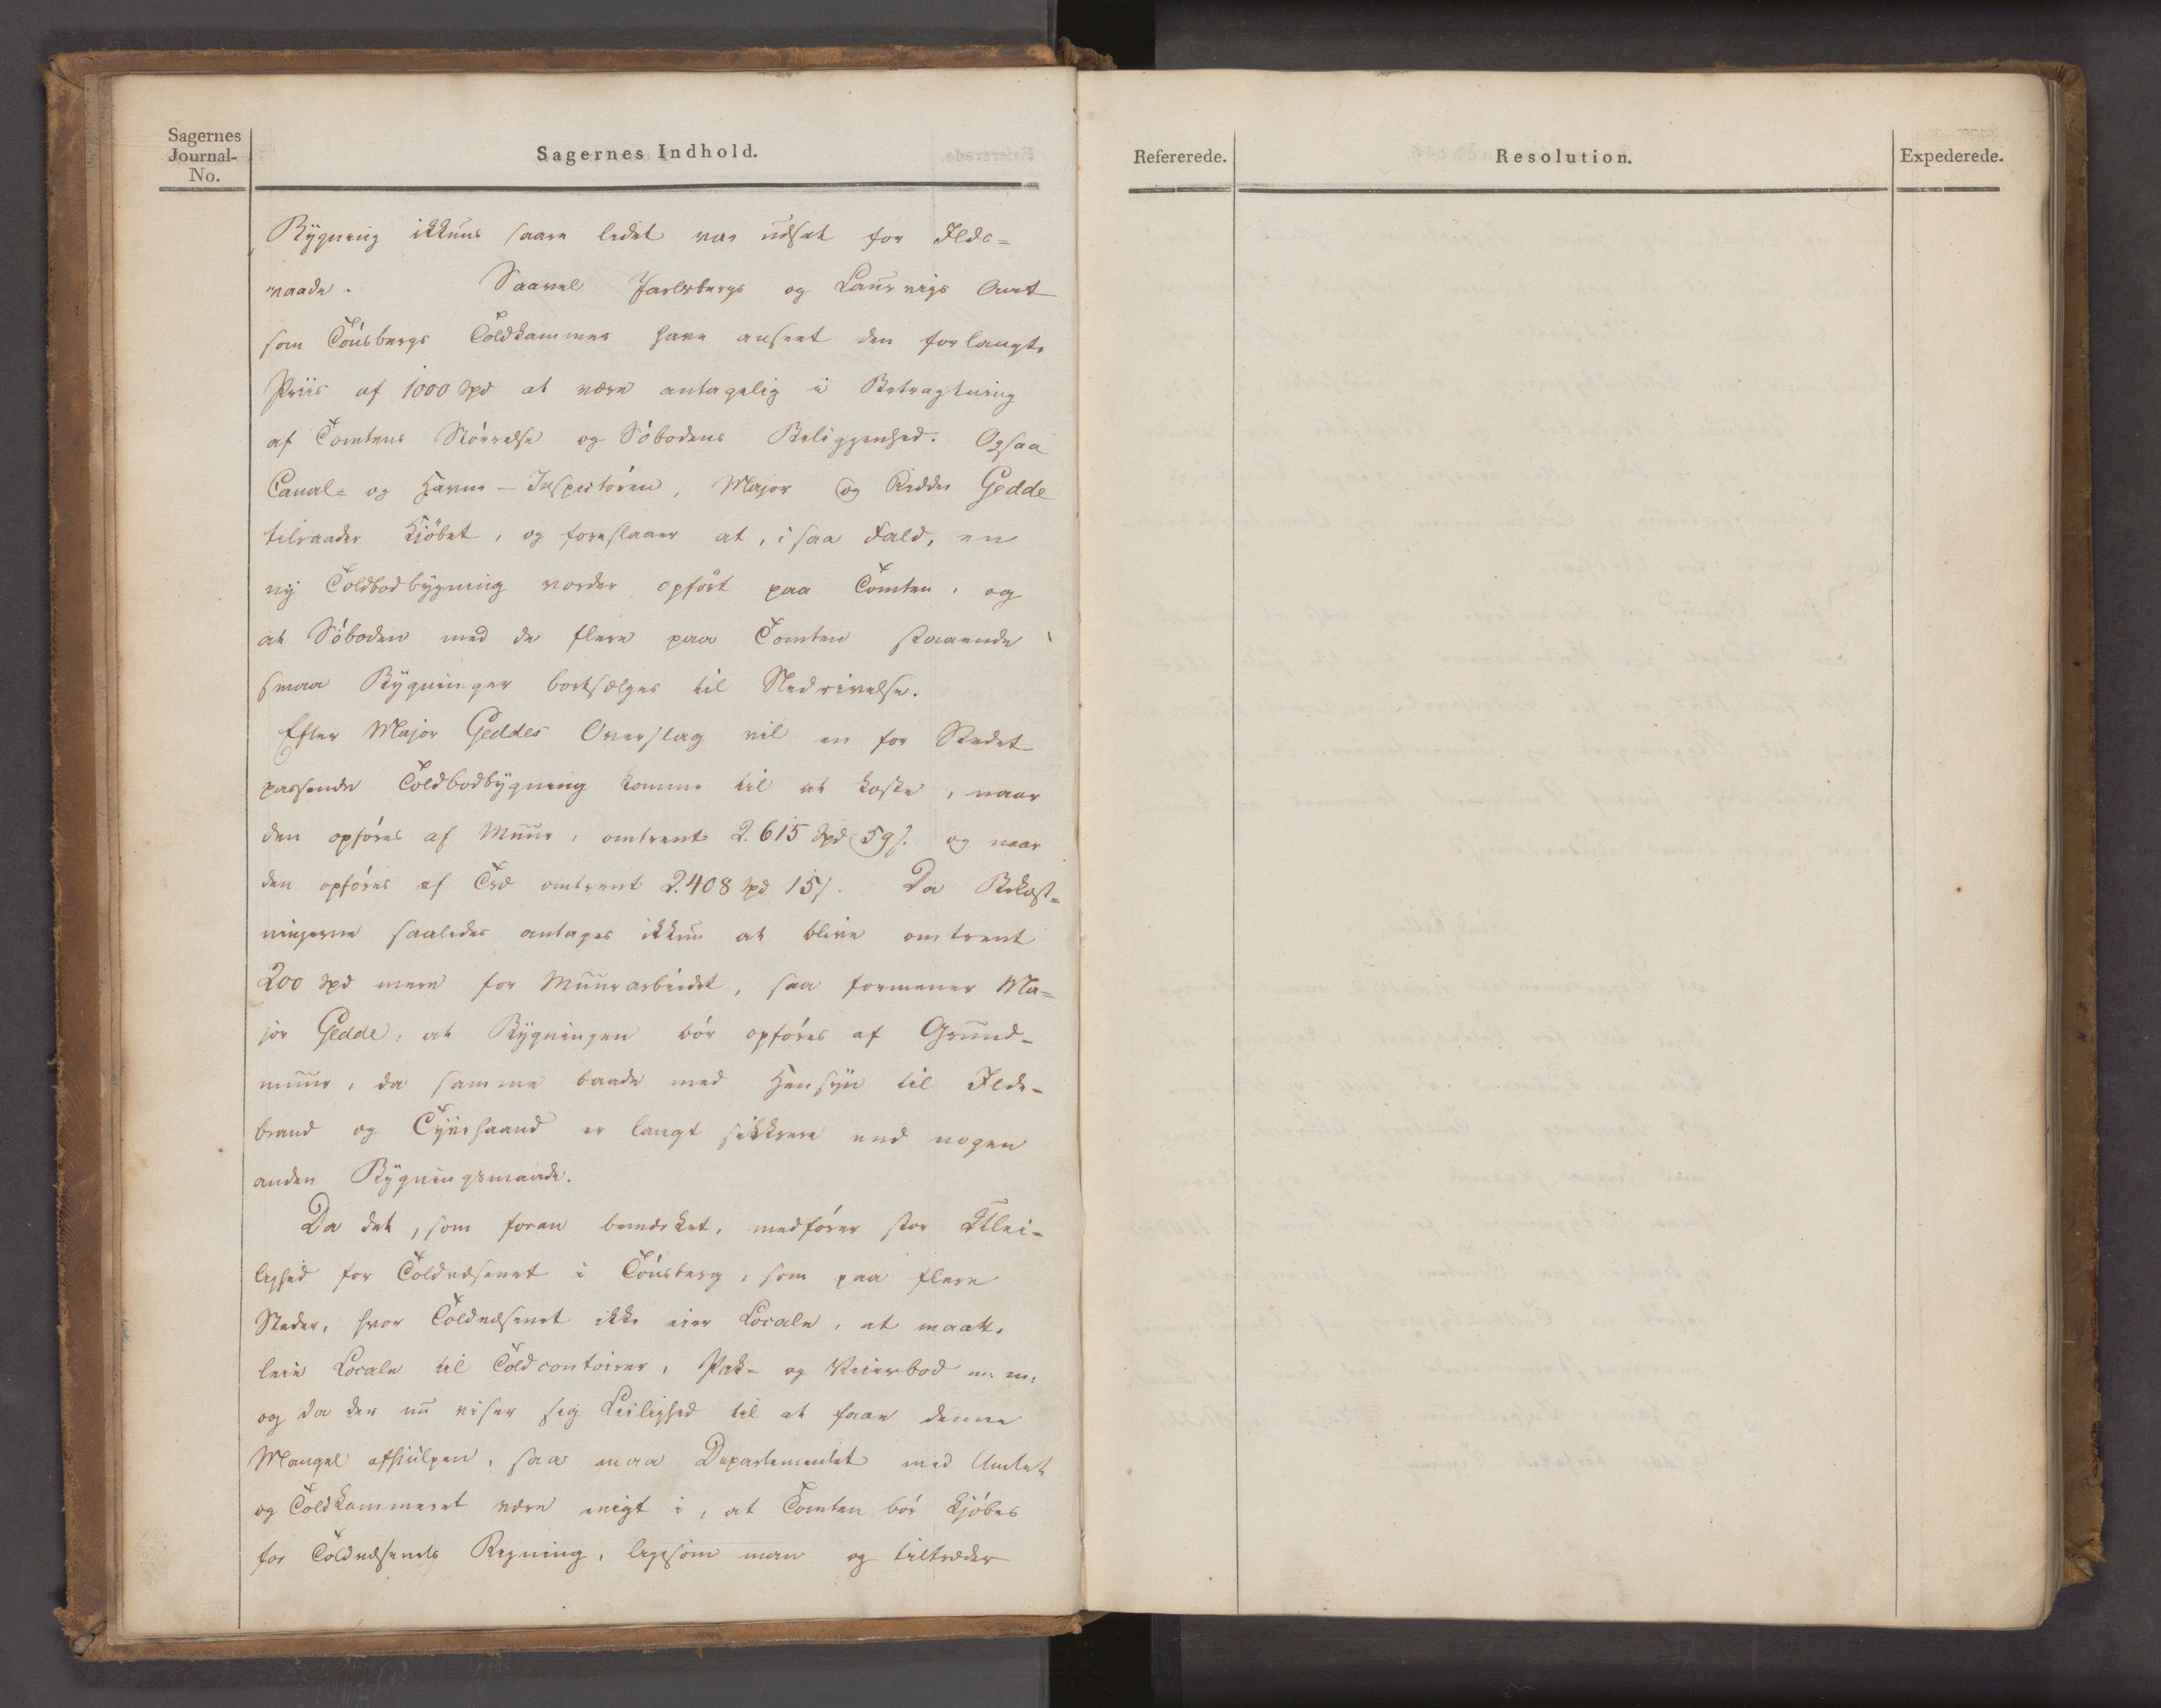 Sagernes
Journal-
No.
Sagernes Indhold.
Bygning ikkuns saare lidet var udsat for Ilds=
vaade. Saavel Jarlsbergs og Laurvigs Amt
som Tönsbergs Toldkammer have anseet den forlangte
Priis af 1000 Spd at være antagelig i Betragtning
af Tomtens Störrelse og Söbodens Beliggenhed. Ogsaa
Canal= og Havne-Inspectören, Major og Ridder Gedde
tilraader Kjöbet, og foreslaaer at, i saa Fald, en
ny Toldbodbygning vorder opfört paa Tomten, og
at Söboden med de flere paa Tomten staaende
smaa Bygninger bortsælges til Nedrivelse.
Efter Major Geddes Overslag vil en for Stedet
passende Toldbodbygning komme til at koste, naar
den opföres af Muur, omtrent 2.615 Spd 59 s. og naar
den opföres af Træ omtrent 2.408 Spd 15 s. Da Bekost=
ningerne saaledes antages ikkun at blive omtrent
200 Spd mere for Muurarbeidet, saa formener Ma=
jor Gedde, at Bygningen bör opföres af Grund-
muur, da samme baade med Hensyn til Ilds-
brand og Tyvehaand er langt sikkrere end nogen
anden Bygningsmaade.
Da det, som foran bemærket, medförer stor Ulei-
lighed for Toldvæsenet i Tönsberg, som paa flere
Steder, hvor Toldvæsenet ikke eier Locale, at maatte
leie Locale til Toldcontoirer, Pak- og Veierbod m. m.
og da der nu viser sig Leilighed til at faae denne
Mangel afhiulpen, saa maa Departementet med Amtet
og Toldkammeret være enigt i, at Tomten bör kjöbes
for Toldvæsenets Regning, ligesom man og tiltræder
Refererede.
Resolution.
Expederede.